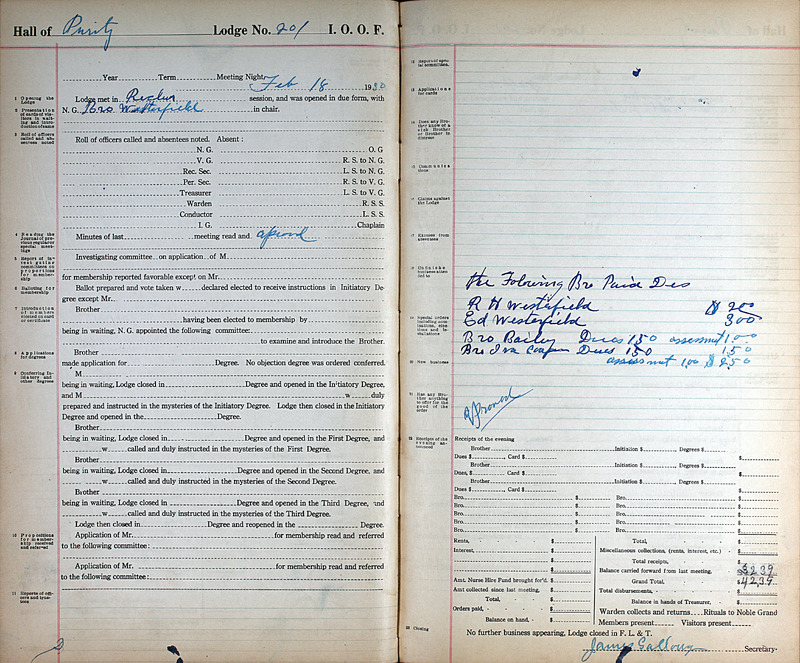 Hall of Purity Lodge No. 201 I. O. O. F.
Year Term Meeting Night, Feb 18 1930
1 Opening the Lodge
Lodge met in session, and was opened in due form, with
N. G. Bro Westerfield in chair.
2 Presentation of cards of visitors in waiting and introduction of same
3 Roll of officers called and absentees noted
Roll of officers called and absentees noted. Absent :
N. G. O. G
V. G. R. S. to N. G.
Rec. Sec. L. S. to N. G.
Per. Sec. R. S. to V. G.
Treasurer L. S. to V. G.
Warden R. S. S.
Conductor L. S. S.
I. G. Chaplain
4 Reading the Journal of previous regular or special meetings
Minutes of last meeting read and
5 Report of investigating committees on propositions for membership
Investigating committee on application of M
for membership reported favorable except on Mr.
6 Balloting for membership
Ballot prepared and vote taken w declared elected to receive instructions in Initiatory De-
gree except Mr.
7 Introduction of members elected on card or certificate
Brother
having been elected to membership by
being in waiting, N. G. appointed the following committee:
to examine and introduce the Brother.
8 Applications for degrees
Brother
made application for Degree. No objection degree was ordered conferred.
9 Conferring Initiatory and other degrees
M
being in waiting, Lodge closed in Degree and opened in the Initiatory Degree,
and M w duly
prepared and instructed in the mysteries of the Initiatory Degree. Lodge then closed in the Initiatory
Degree and opened in the Degree.
Brother
being in waiting, Lodge closed in Degree and opened in the First Degree, and
w called and duly instructed in the mysteries of the First Degree.
Brother
being in waiting, Lodge closed in Degree and opened in the Second Degree, and
w called and duly instructed in the mysteries of the Second Degree.
Brother
being in waiting, Lodge closed in Degree and opened in the Third Degree, and
w called and duly instructed in the mysteries of the Third Degree.
Lodge then closed in Degree and reopened in the Degree.
10 Propositions for membership received and referred
Application of Mr. for membership read and referred
to the following committee:
Application of Mr. for membership read and referred
to the following committee:
11 Reports of officers and trustees
12 Reports of special committees
13 Applications for cards
14 Does any Brother know of a sick Brother or Brother in distress
15 Communications
Claims against the Lodge
Excuses from absentees
Unfinished business attended to
the Following Bro Paid Dues
R H Westerfield $ 200
Ed Westerfield 300
Special orders including nominations, elections and installations
Bro Bailey Dues 150 assesmt 1.00
Bro Ira Dues 150 1.50
assesmt 1.00 $ 2.50
New business
Has any Brother anything to offer for the good of the order
Receipts of the evening announced
Receipts of the evening
Brother Initiation $ Degrees $
Dues $ Card $ $
Brother Initiation $ Degrees $
Dues, $ Card $ $
Brother Initiation $ Degrees $
Dues $ Card $ $
Bro. $ Bro. $
Bro. $ Bro. $
Bro. $ Bro. $
Bro. $ Bro. $
Bro. $ Bro. $
Rents, $ Total, $
Interest, $ Miscellaneous collections, (rents, interest, etc.) $
Total receipts, $
$ Balance carried forward from last meeting,
Amt. Nurse Hire Fund brought for'd. $ Grand Total, $ 4239
Amt collected since last meeting, $ Total disbursements, $
Total, $ Balance in hands of Treasurer, $
Orders paid, $ Warden collects and returns Rituals to Noble Grand
Balance on hand, $ Members present Visitors present
Closing
No further business appearing, Lodge closed in F. L. & T.
James Secretary.